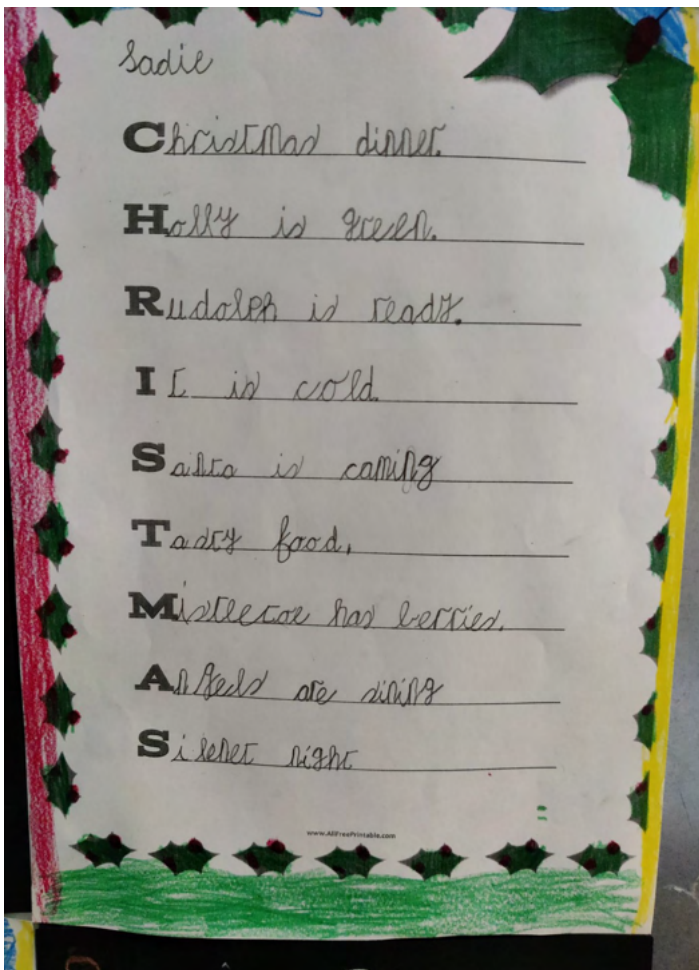 Sadie
Christmas dinner.
Holly is green.
Rudolph is ready.
It is cold.
Santa is coming
Tasty food.
Mistletoe has berries.
Angels are sining
Silenet night
www.AllFreePrintable.com